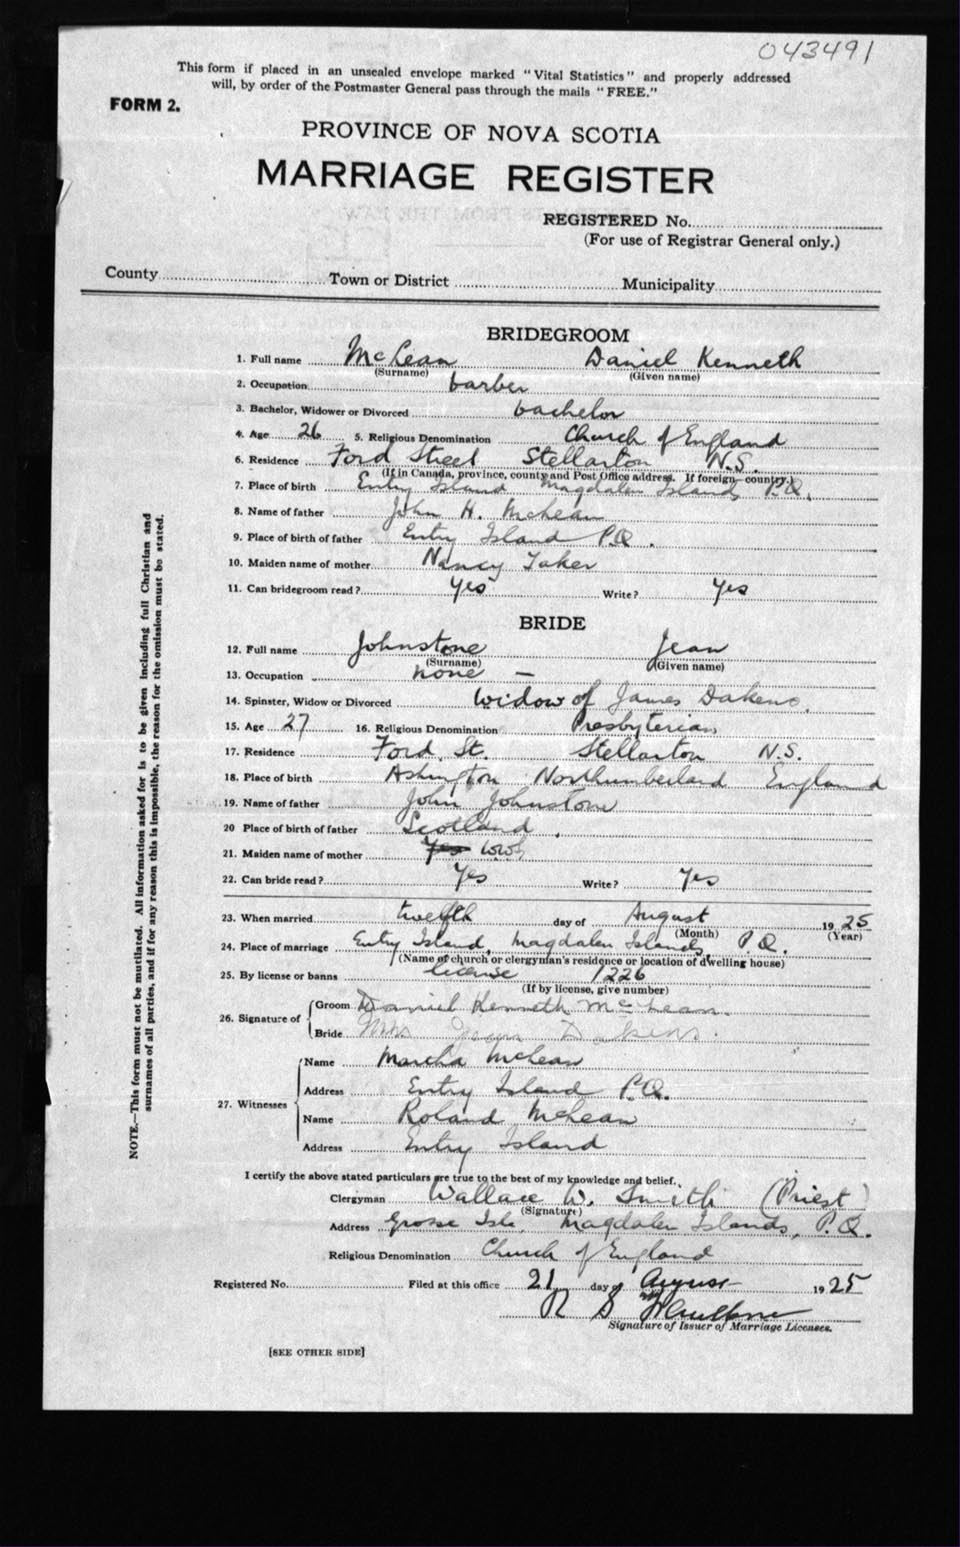 043491
This form if placed in an unsealed envelope marked "Vital Statistics" and properly addressed
will, by order of the Postmaster General pass through the mails "FREE."
FORM 2.
PROVINCE OF NOVA SCOTIA
MARRIAGE REGISTER
REGISTERED No.
(For use of Registrar General only.)
County Town or District Municipality
BRIDEGROOM
1. Full name McLean Daniel Kenneth
(Surname) (Given name)
2. Occupation barber
3. Bachelor, Widower or Divorced bachelor
4. Age 26 5. Religious Denomination Church of England
6. Residence Ford Street Stellarton N.S.
(If in Canada, province, county and Post Office address. If foreign country.)
7. Place of birth Entry Island Magdalen Islands P.Q.
8. Name of father John H. McLean
9. Place of birth of father Entry Island P.Q.
10. Maiden name of mother Nancy
11. Can bridegroom read? Yes Write? Yes
BRIDE
12. Full name Johnstone Jean
(Surname) (Given name)
13. Occupation none —
14. Spinster, Widow or Divorced Widow of James
15. Age 27 16. Religious Denomination Presbyterian
17. Residence Ford St. Stellarton N.S.
18. Place of birth Ashington Northumberland England
19. Name of father John Johnstone
20 Place of birth of father Scotland
21. Maiden name of mother
22. Can bride read? Yes Write? Yes
23. When married twelfth day of August 1925
(Month) (Year)
24. Place of marriage Entry Island, Magdalen Islands, P.Q.
(Name of church or clergyman's residence or location of dwelling house)
25. By license or banns license 1226
(If by license, give number)
26. Signature of
Groom Daniel Kenneth McLean.
Bride Mrs Jean
27. Witnesses
Name Martha McLean
Address Entry Island P.Q.
Name Roland McLean
Address Entry Island
I certify the above stated particulars are true to the best of my knowledge and belief.
Clergyman Wallace W. Smith (Priest)
(Signature)
Address Grosse Isle, Magdalen Islands, P.Q.
Religious Denomination Church of England
Registered No. Filed at this office 21 day of August 1925
R S
Signature of Issuer of Marriage Licenses.
[SEE OTHER SIDE]
NOTE.—This form must not be mutilated. All information asked for is to be given including full Christian and
surnames of all parties, and if for any reason this is impossible, the reason for the omission must be stated.